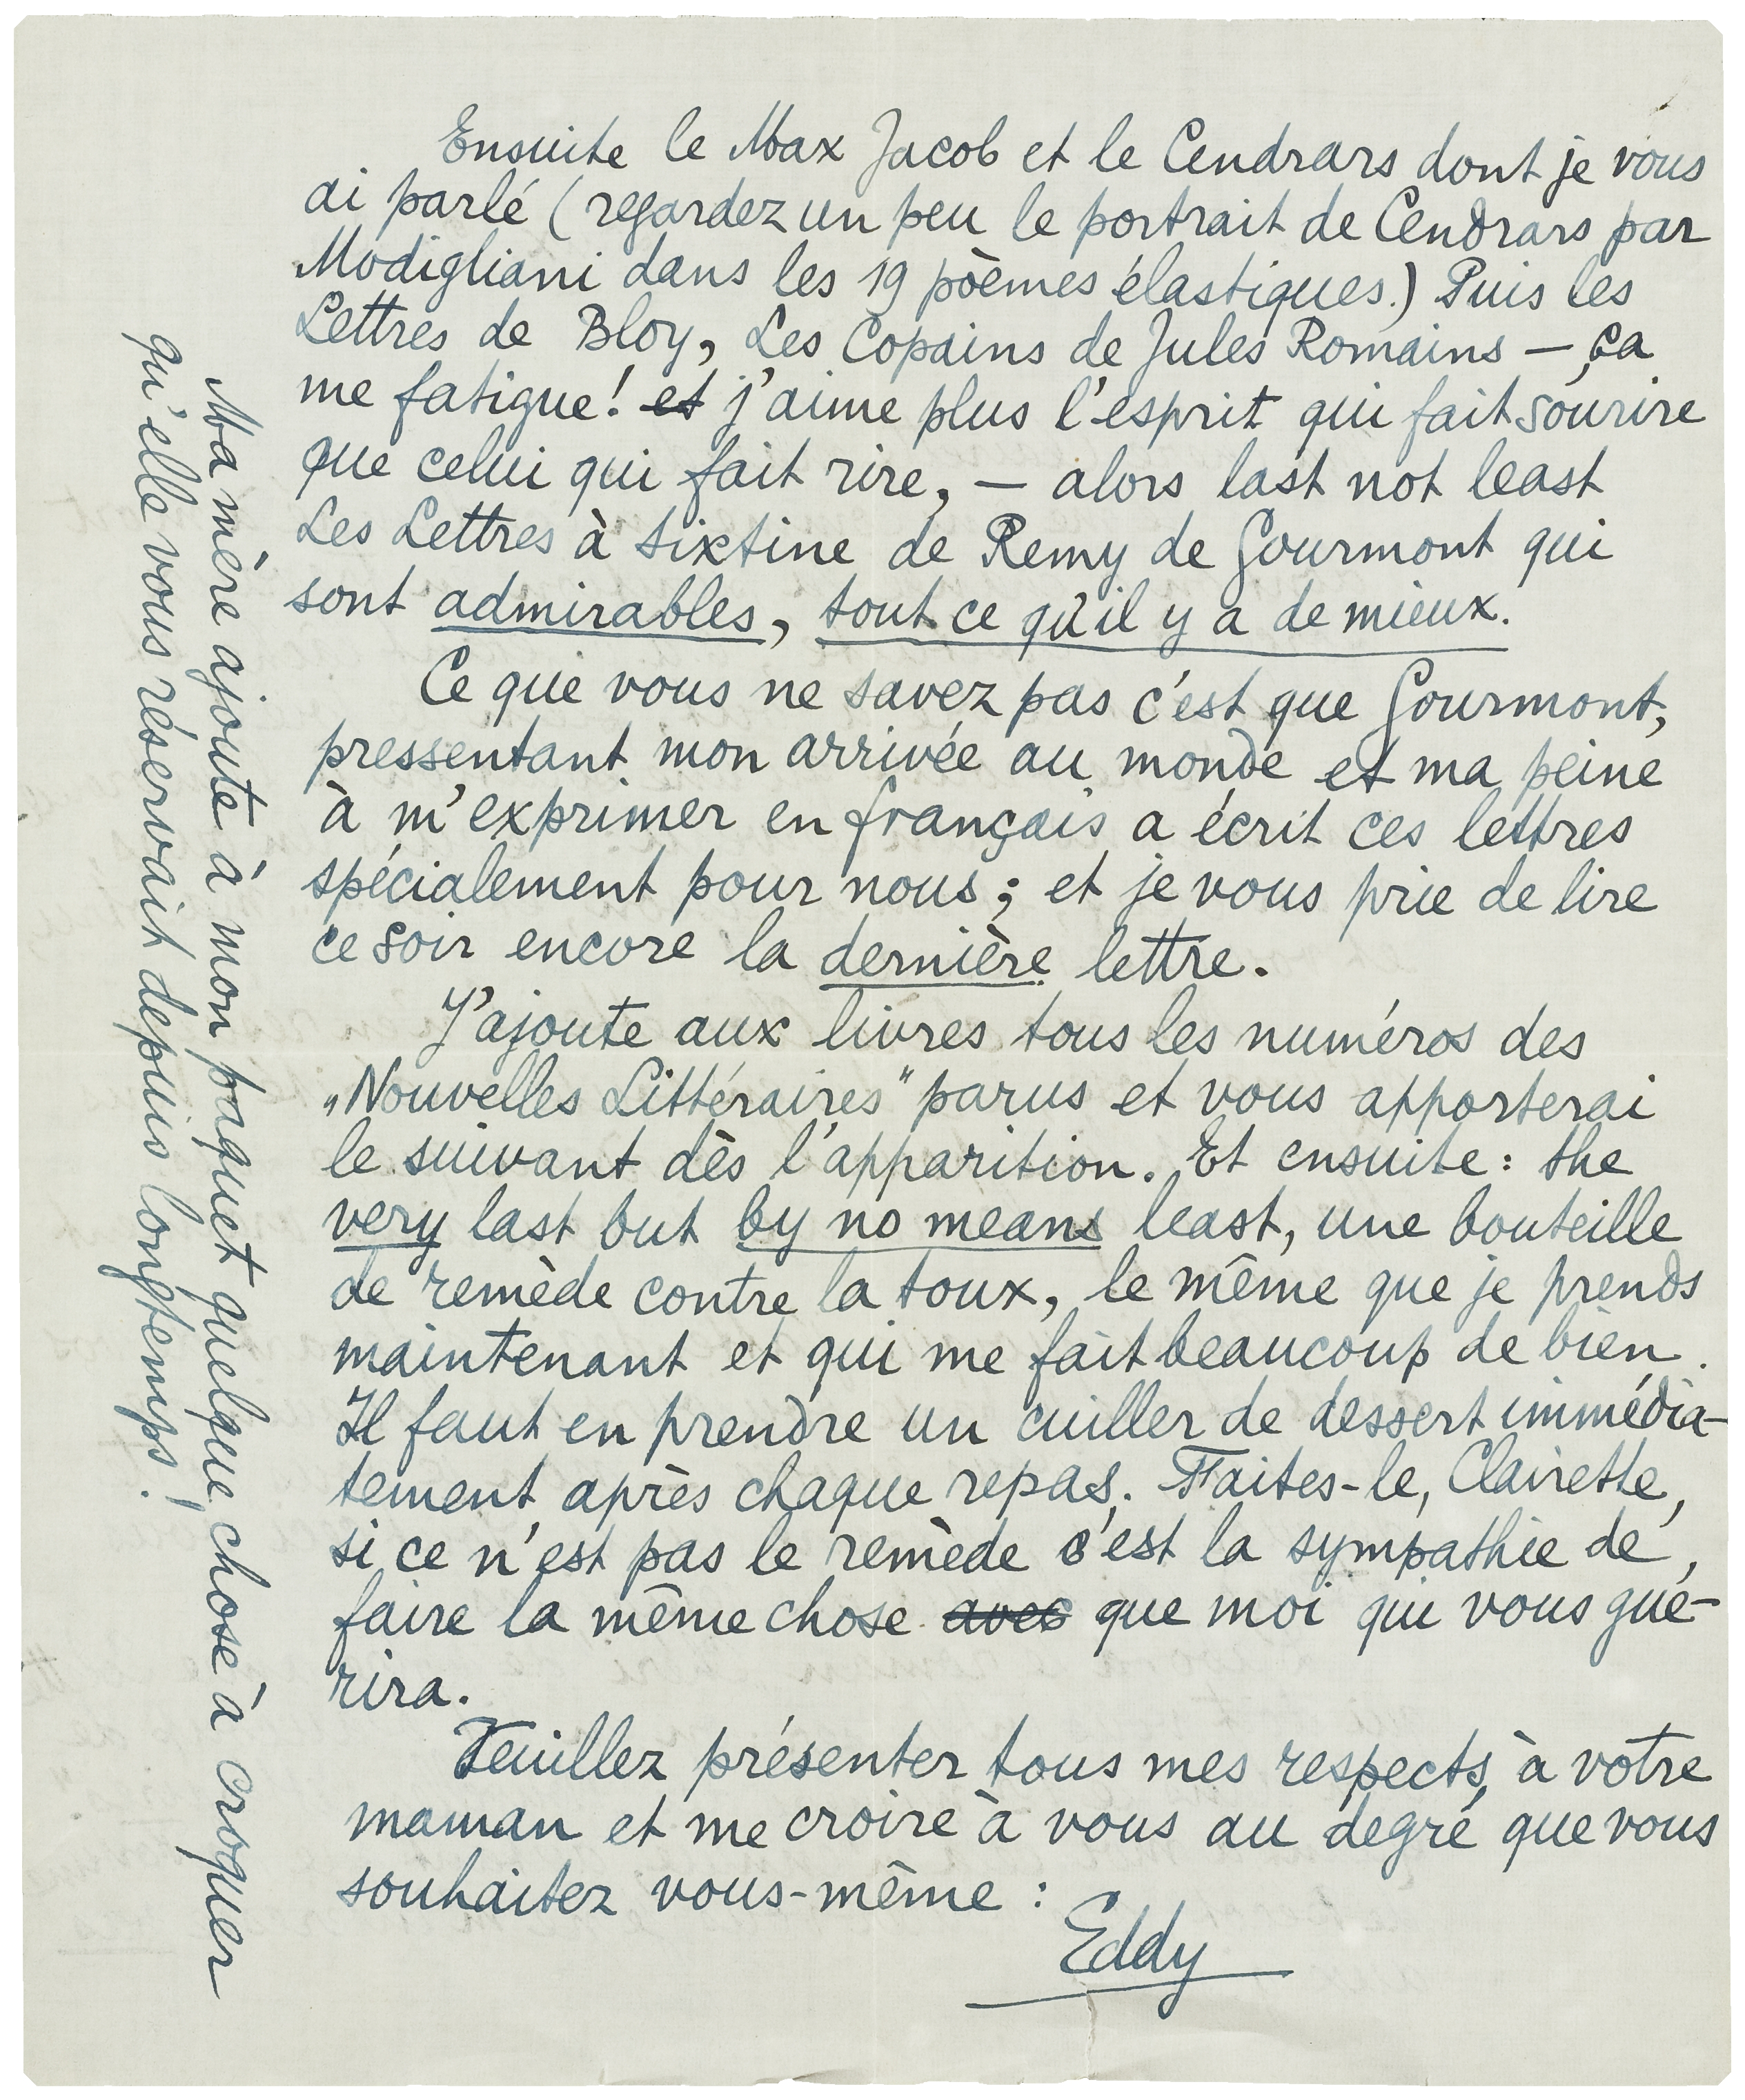 Ensuite le Max Jacob et le Cendrars dont je vous
ai parlé (regardez un peu le portrait de Cendrars par
Modigliani dans les 19 pòèmes élastiques.) Puis les
Lettres de Bloy, Les Copains de Jules Romains — Ça
me fatigue! et j'aime plus l'esprit qui fait sourire
que celui qui fait rire, — alors last not least
Les Lettres à Sixtine de Remy de Gourmont qui
sont admirables, tout ce qu'il y a de mieux.
Ce que vous ne savez pas c'est que Gourmont,
pressentant mon arrivée au monde et ma peine
à m'exprimer en français a écrit ces lettres
spécialement pour nous; et je vous prie de lire
ce soir encore la dernière lettre.
J'ajoute aux livres tous les numéros des
„Nouvelles Littéraires" parus et vous apporterai
le suivant dès l'apparition. Et ensuite: the
very last but by no means least, une bouteille
de remède contre la toux, le même que je prends
maintenant et qui me fait beaucoup de bien.
Il faut en prendre un cuiller de dessert immédia-
tement après chaque repas. Faites-le, Clairette,
si ce n'est pas le remède c'est la sympathie de
faire la même chose avec que moi qui vous gué-
rira.
Veuillez présenter tous mes respects à votre
maman et me croire à vous au degré que vous
souhaitez vous-même:
Eddy
Ma mère ajoute à mon paquet quelque chose à croquer
qu'elle vous réservait depuis longtemps!